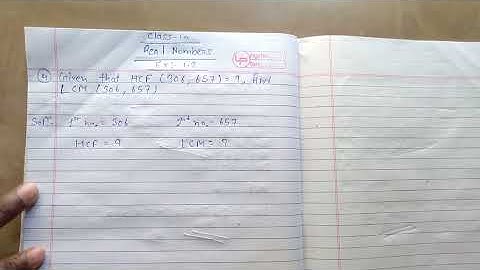 Class-10
Real Numbers
Ex:- 1.2
④ Given that HCF (306, 657) = 9, find
LCM (306, 657)
Solⁿ- 1st no. = 306 2nd no. = 657
HCF = 9 LCM = ?